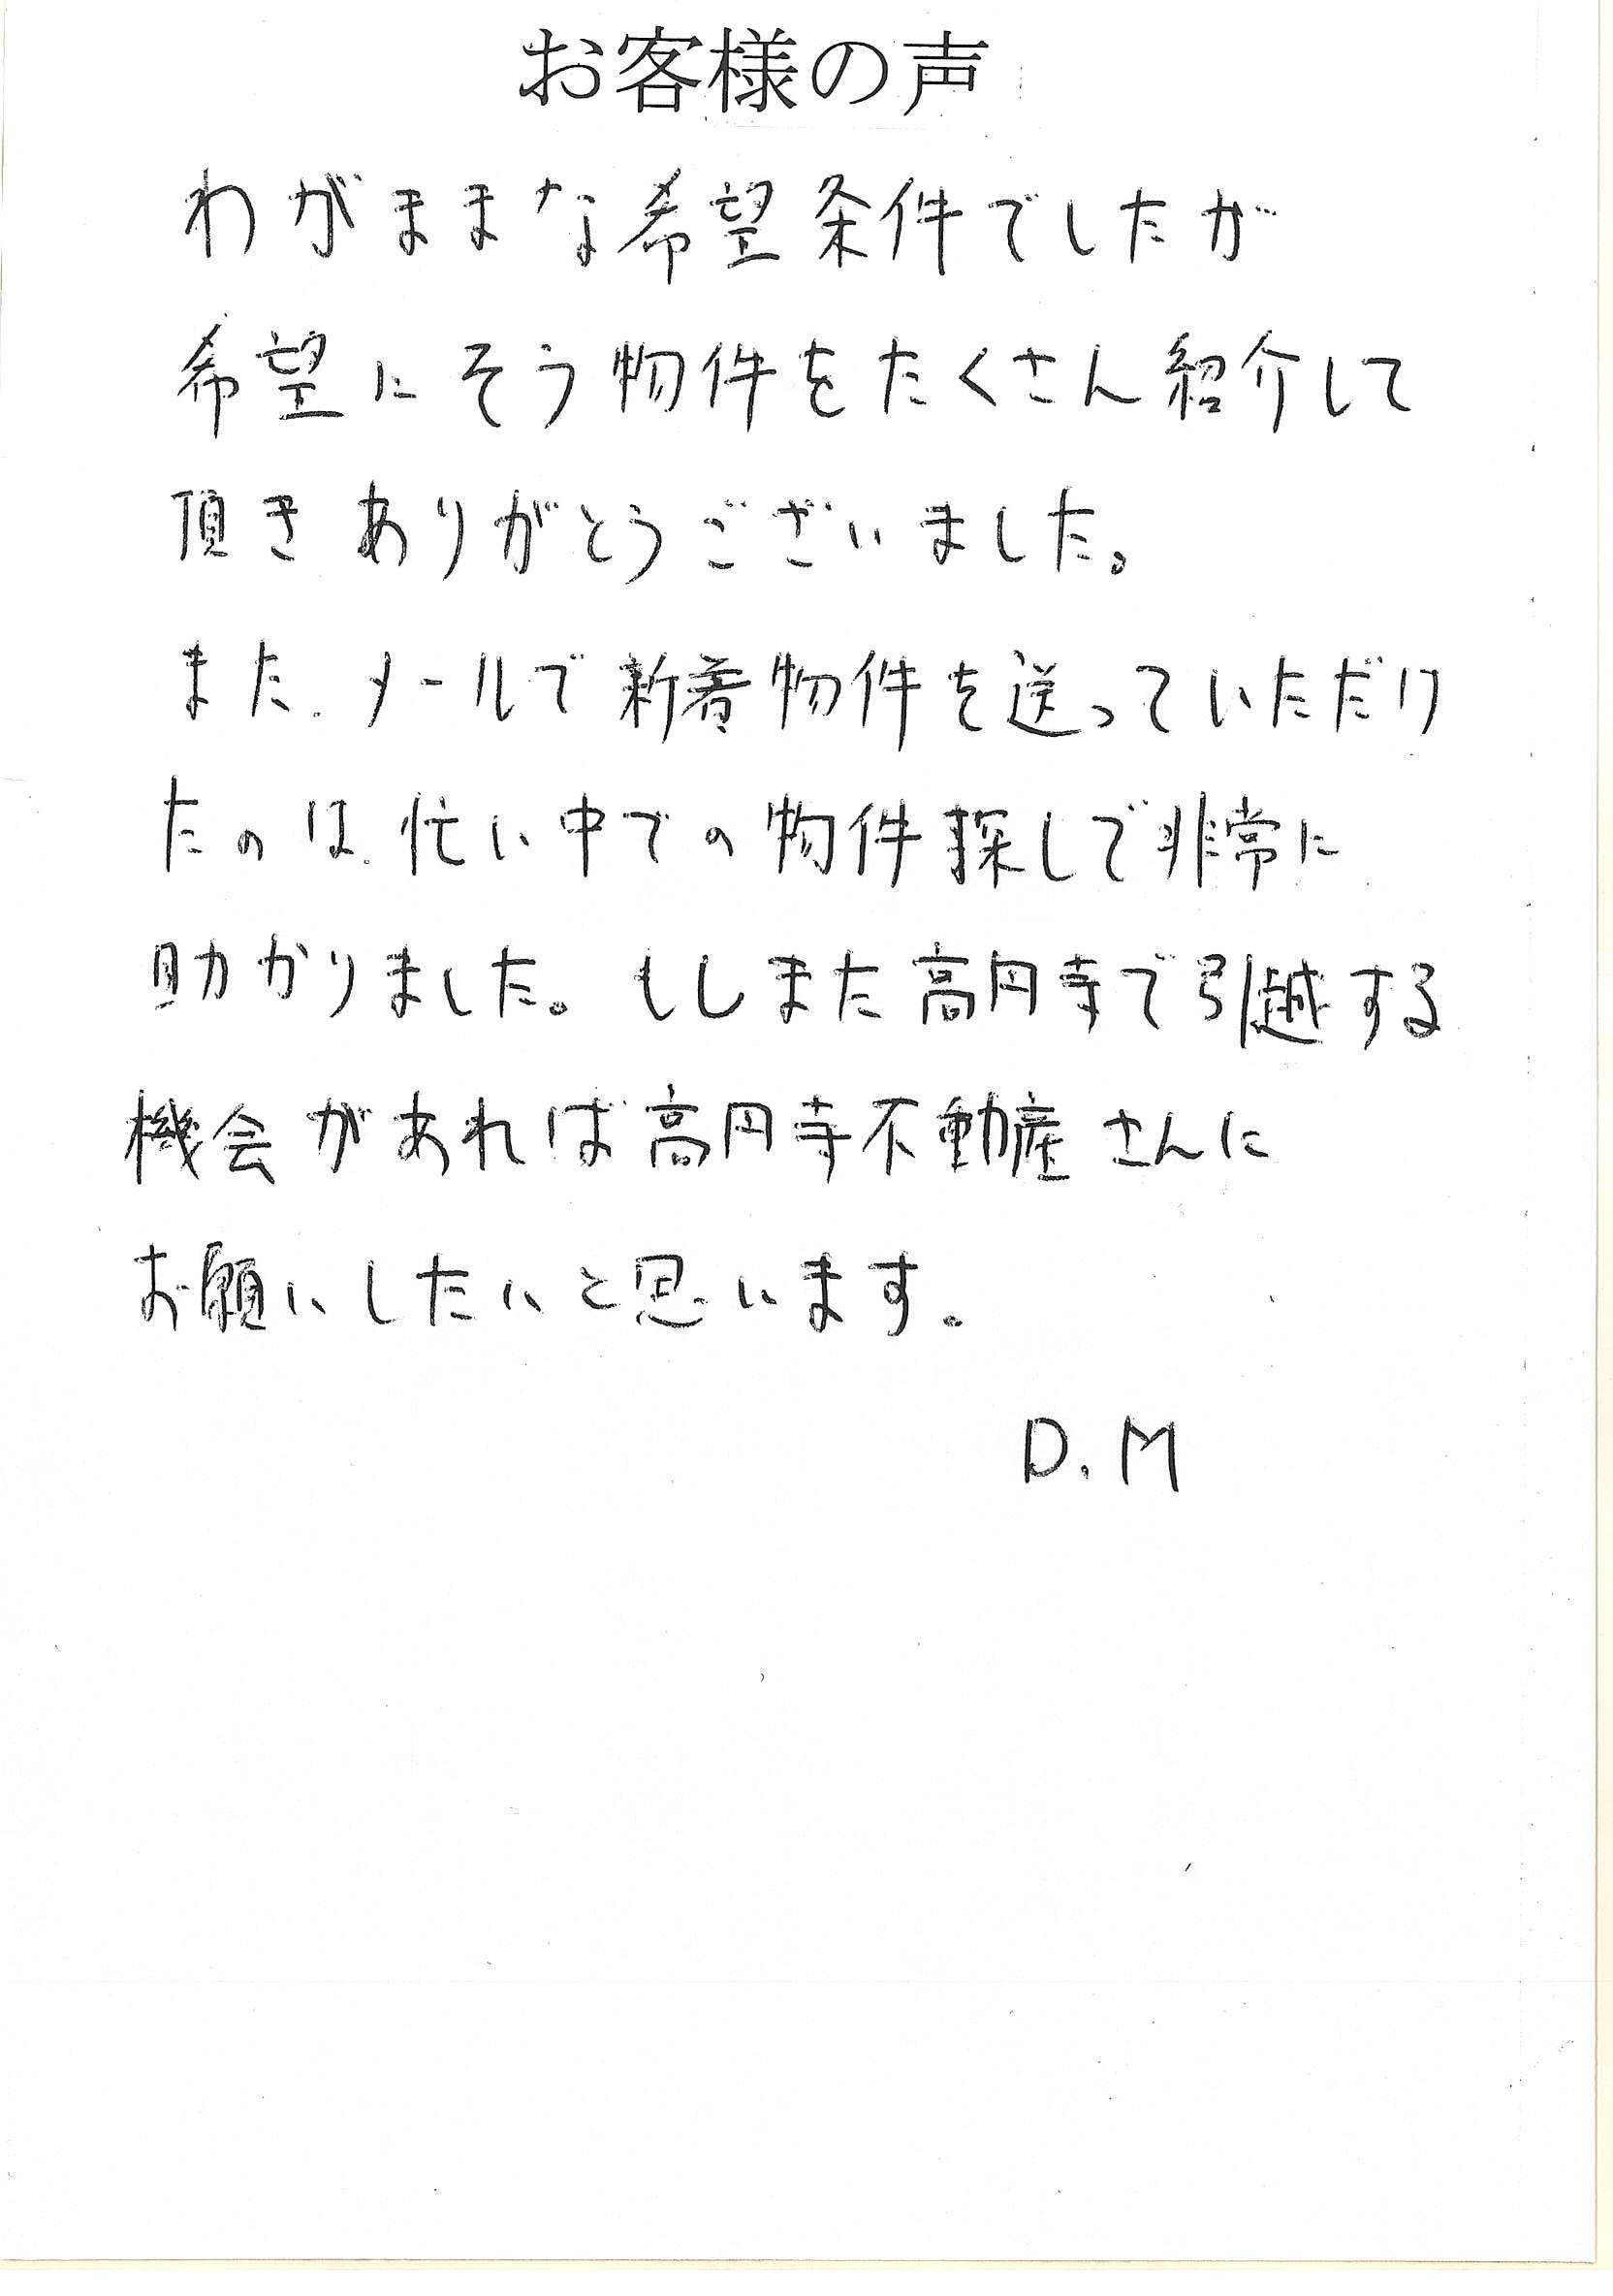 お客様の声
わがままな希望条件でしたが
希望にそう物件をたくさん紹介して
頂きありがとうございました。
また、メールで新着物件を送っていただけ
たのは、忙い中での物件探しで非常に
助かりました。もしまた高円寺で引越する
機会があれば高円寺不動産さんに
お願いしたいと思います。
D.M